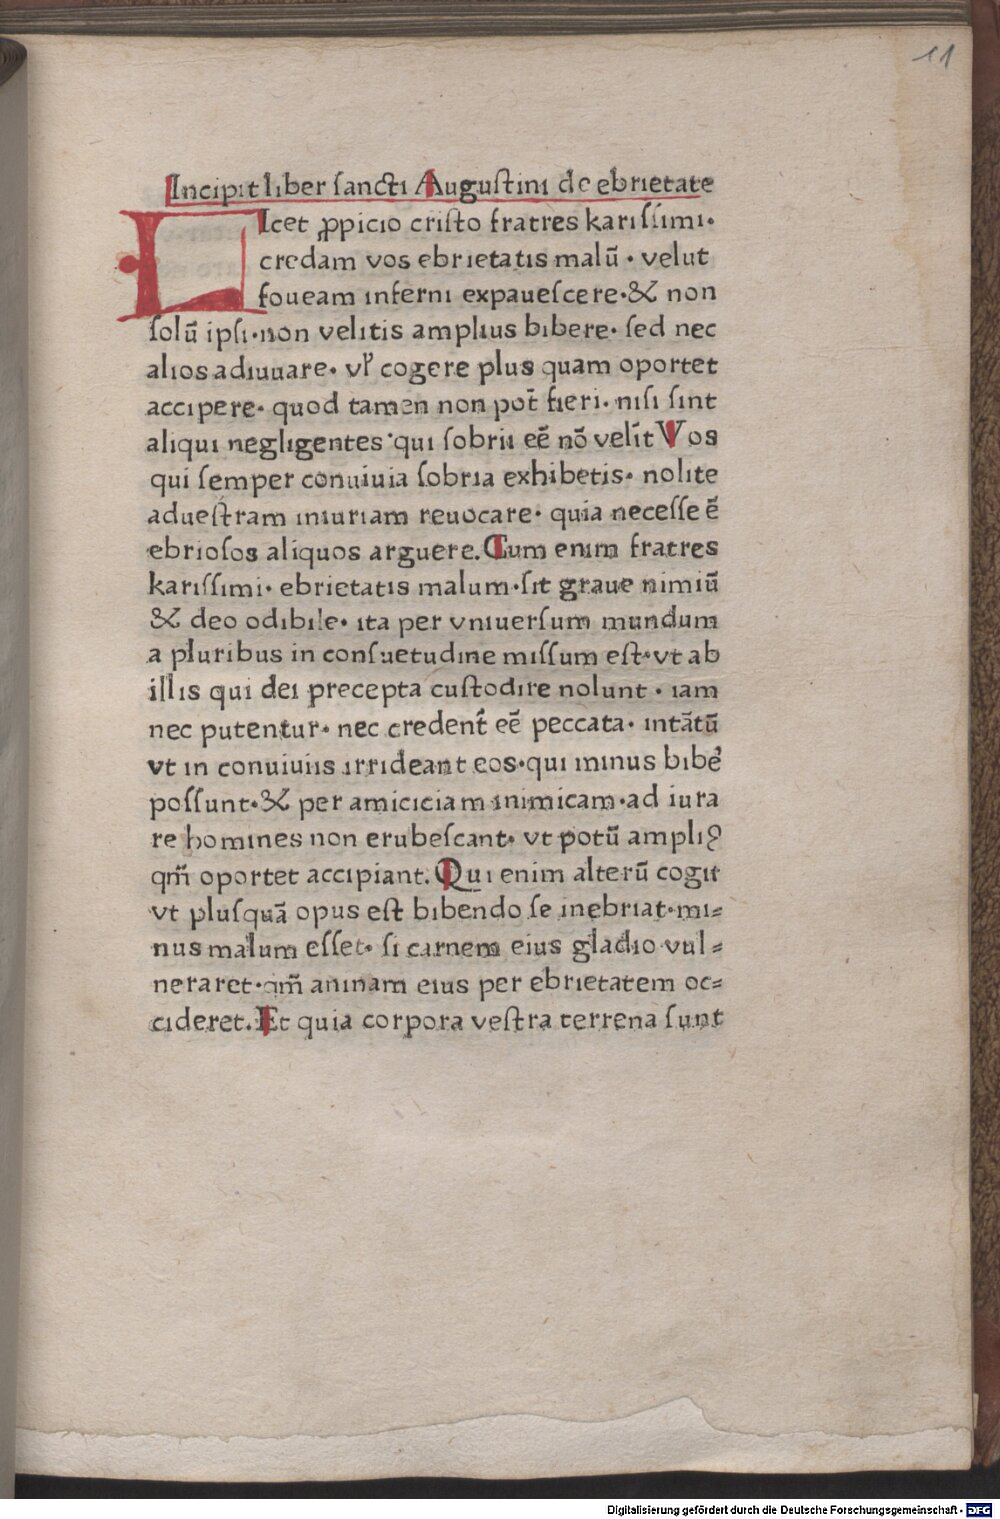 11
Incipit liber sancti Augustini de ebrietate
LIcet ꝓpicio cristo fratres karissimi·
credam vos ebrietatis malū · velut
foueam inferni expauescere·& non
solū ipsi·non velitis amplius bibere· sed nec
alios adiuuare· vl̕ cogere plus quam oportet
accipere· quod tamen non pot̄ fieri· nisi sint
aliqui negligentes·qui sobrii eē nō velīt Vos
qui semper conuiuia sobria exhibetis· nolite
aduestram iniuriam reuocare· quia necesse ē
ebriosos aliquos arguere.Cum enim fratres
karissimi· ebrietatis malum·sit graue nimiū
& deo odibile· ita per vniuersum mundum
a pluribus in consuetudine missum est·vt ab
illis qui dei precepta custodire nolunt · iam
nec putentur· nec credent̄ eē peccata· intātū
vt in conuiuiis irrideant eos·qui minus bibe᷑
possunt·& per amiciciam inimicam·ad iura
re homines non erubescant· vt potū ampliꝯ
qm̄ oportet accipiant.Qui enim alterū cogit
vt plusquā opus est bibendo se inebriat·mi⸗
nus malum esset· si carnem eius gladio vul⸗
neraret·qm̄ animam eius per ebrietatem oc⸗
cideret.Et quia corpora vestra terrena sunt
Digitalisierung gefördert durch die Deutsche Forschungsgemeinschaft - DFG